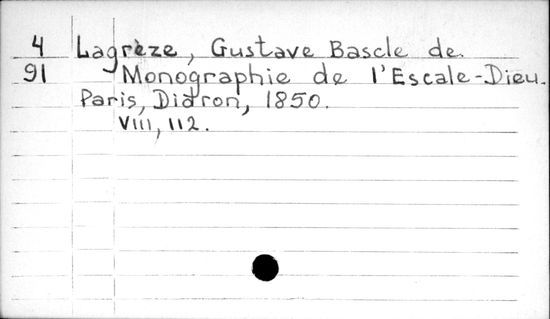 4 Lagrèze, Gustave Bascle de
91 Monographie de l'Escale-Dieu.
Paris, Didron, 1850.
VIII, 112.